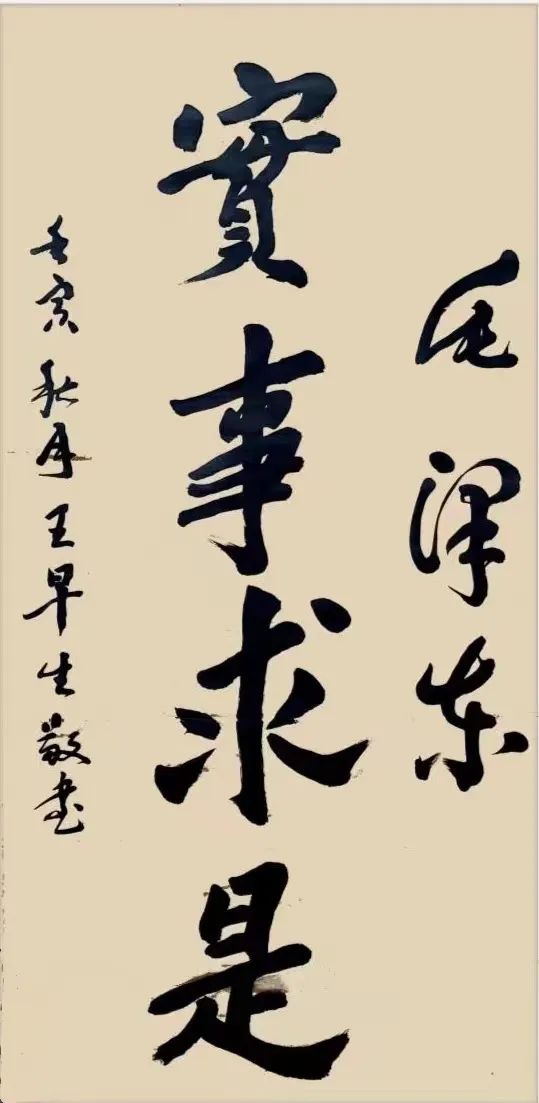 毛泽东
實事求是
壬寅秋月王早生敬书